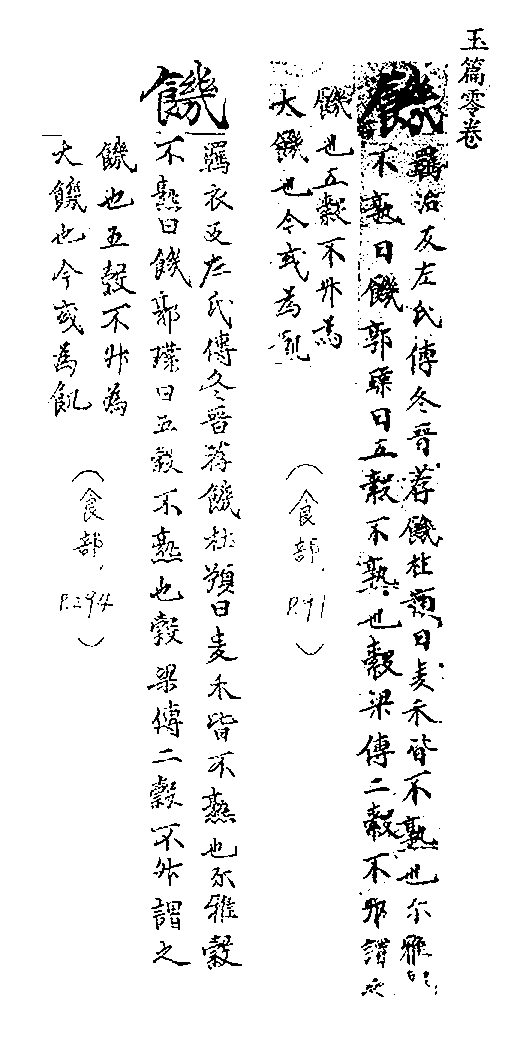 玉篇零卷
饑
羈治反左氏傳冬晉荐饑杜預曰麦禾皆不熟也尔雅
不熟曰饑郭璞曰五穀不熟也穀梁傳二穀不升謂之
饑也五穀不升為
大饑也今或為飢
（食部．P.91）
饑
羈衣反左氏傳冬晉荐饑杜預曰麦禾皆不熟也尔雅穀
不熟曰饑郭璞曰五穀不熟也穀梁傳二穀不升謂之
饑也五穀不升為
大饑也今或為飢
（食部．P.294）